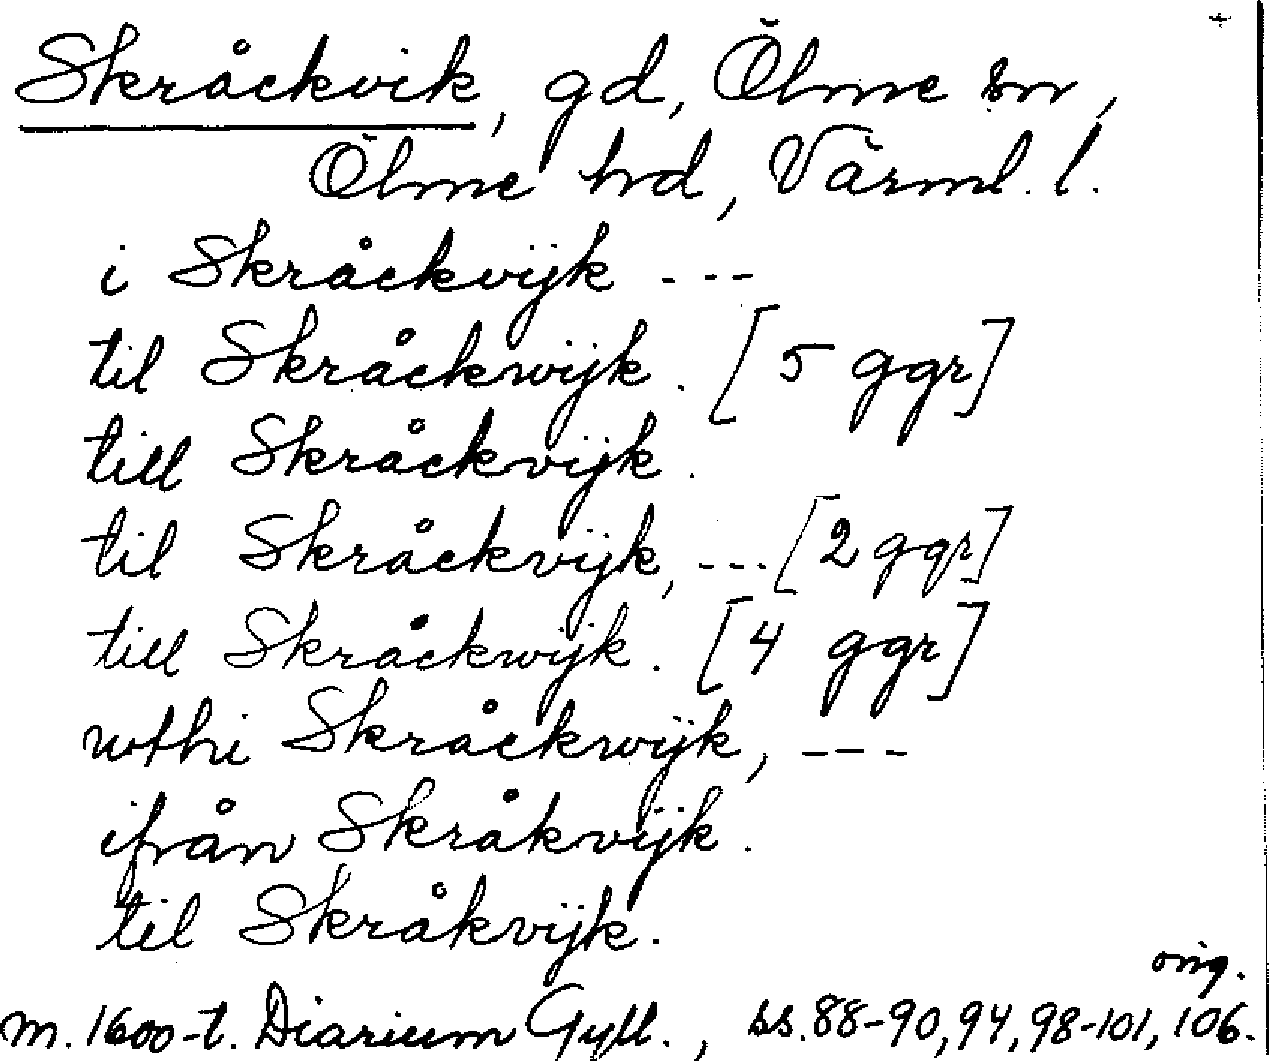 +
Skråckvik, gd, Ölme sn,
Ölme hd, Värml. l.
i Skråckvijk ---
til Skråckwijk. [5 ggr]
till Skråckvijk.
til Skråckvijk, ---. [2 ggr]
till Skråckwijk. [4 ggr]
wthi Skråckwijk, ---
ifrån Skråkvijk.
til Skråkvijk.
orig.
m. 1600-t. Diarium Gyll., ss. 88-90, 94, 98-101, 106.